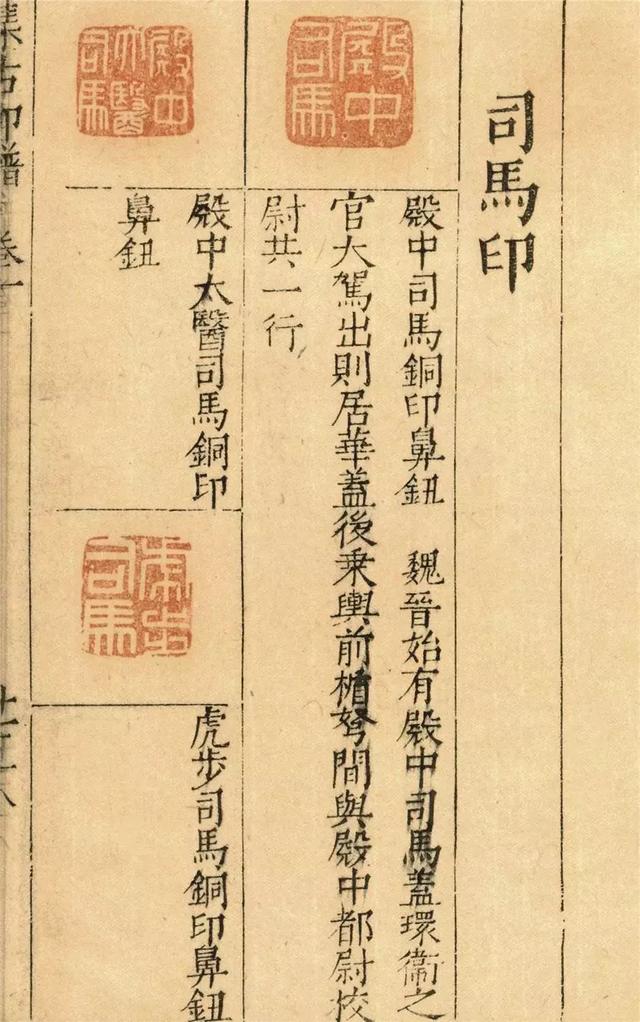 司馬印
殿中
司馬
殿中司馬銅印鼻鈕　魏晉始有殿中司馬蓋環衛之
官大駕出則居華蓋後乗輿前楯弩間與殿中都尉校
尉共一行
殿中
太醫
司馬
殿中太醫司馬銅印
鼻鈕
虎步
司馬
虎步司馬銅印鼻鈕
集古印譜卷一